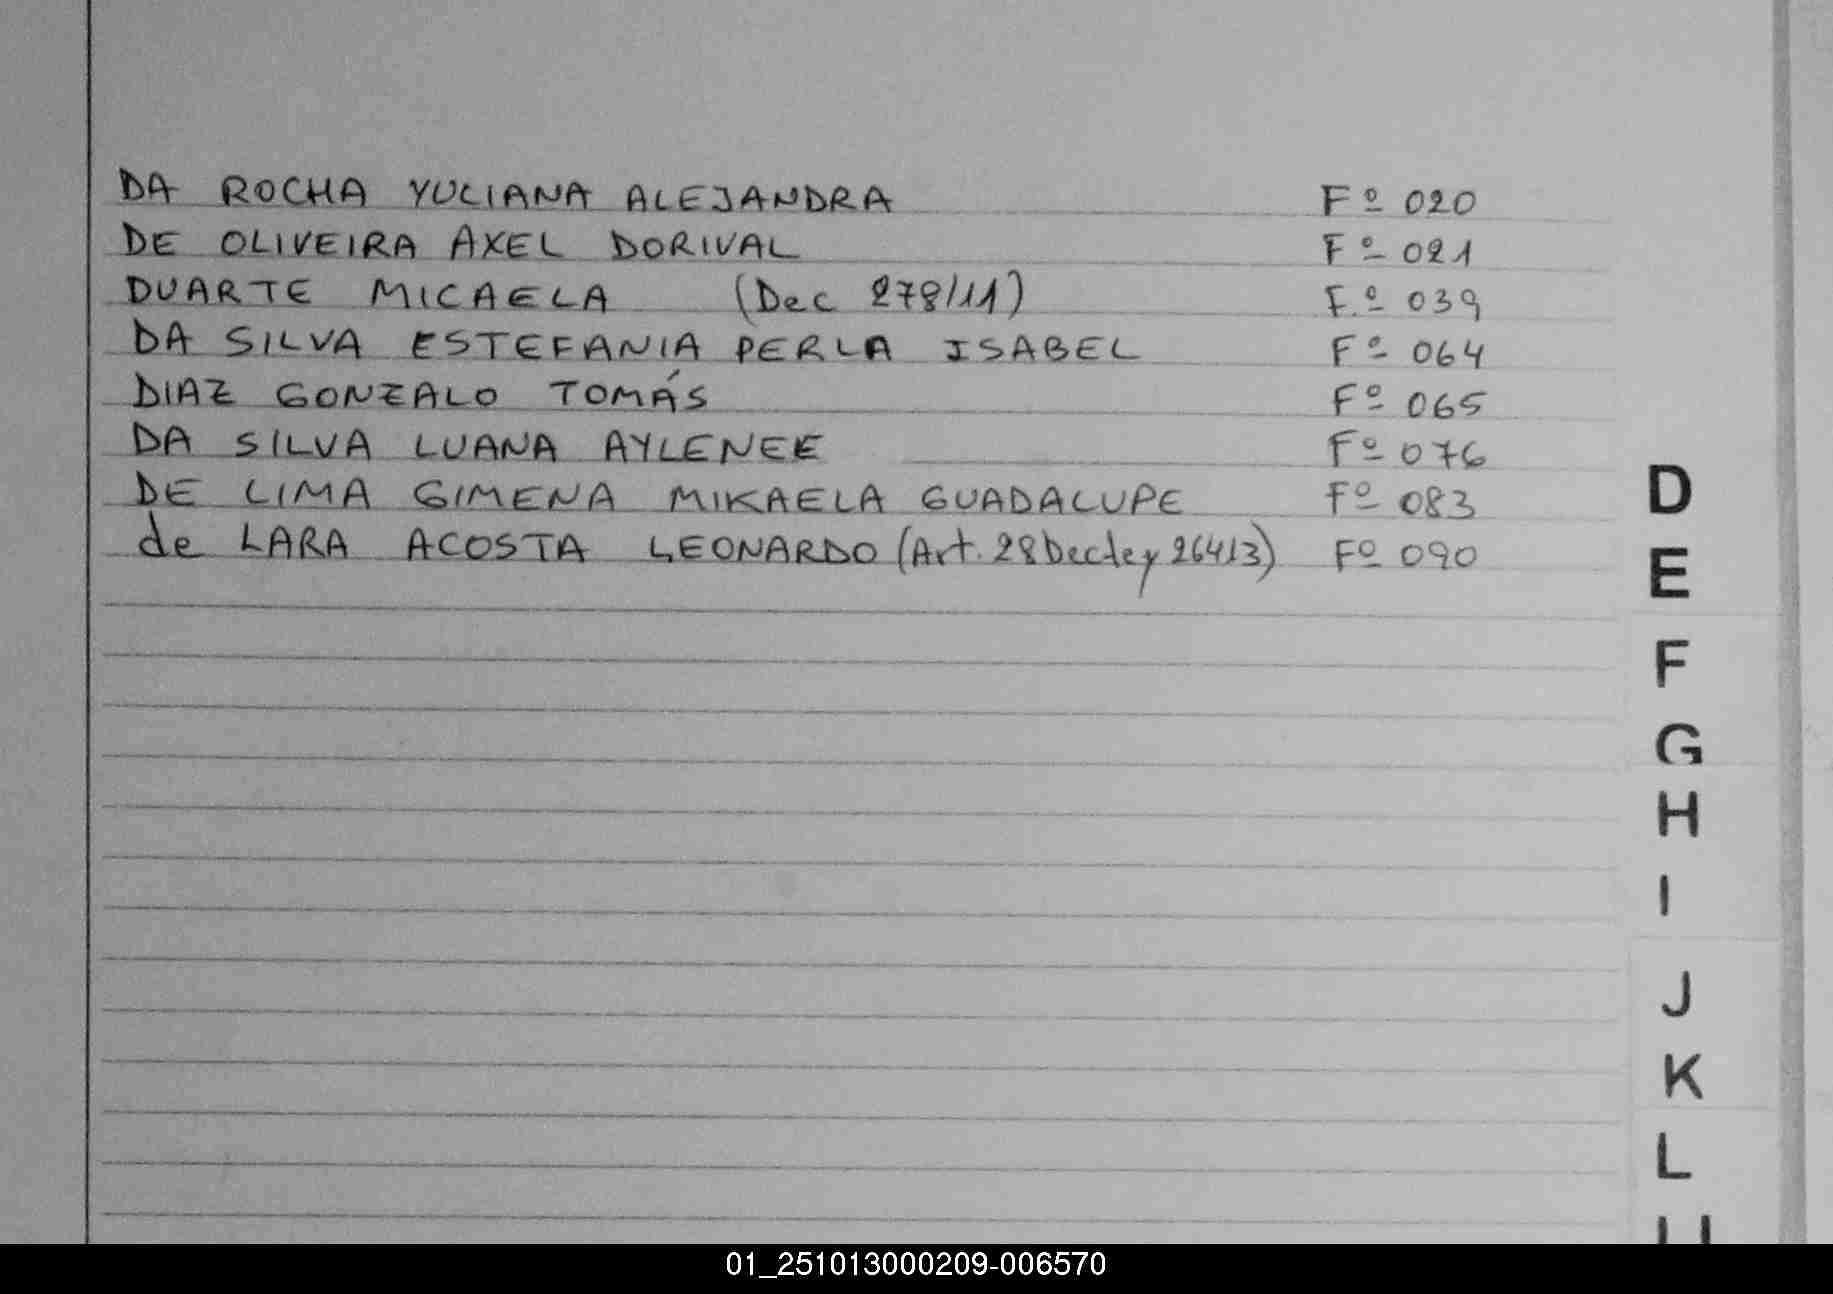 DA ROCHA YULIANA ALEJANDRA Fº 020
DE OLIVEIRA AXEL DORIVAL Fº 021
DUARTE MICAELA (Dec 278/11) F.º 039
DA SILVA ESTEFANIA PERLA ISABEL Fº 064
DIAZ GONZALO TOMÁS Fº 065
DA SILVA LUANA AYLENEE Fº 076
DE LIMA GIMENA MIKAELA GUADALUPE Fº 083
de LARA ACOSTA LEONARDO (Art. 28 Dec Ley 26413) Fº 090
D
E
F
G
H
I
J
K
L
01_251013000209-006570